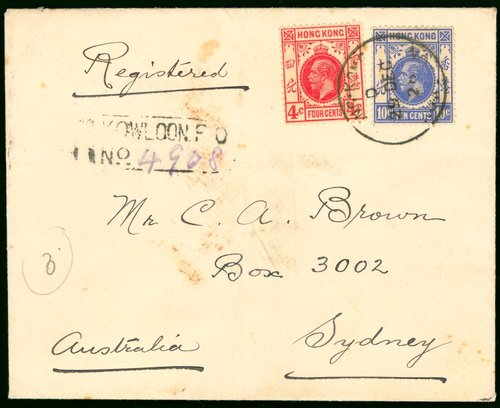 Registered
HONG KONG
4c
FOUR CENTS
HONG KONG
10c
TEN CENTS
KOWLOON. P O
No 4908
Mr C. A. Brown
Box 3002
Sydney
Australia
3